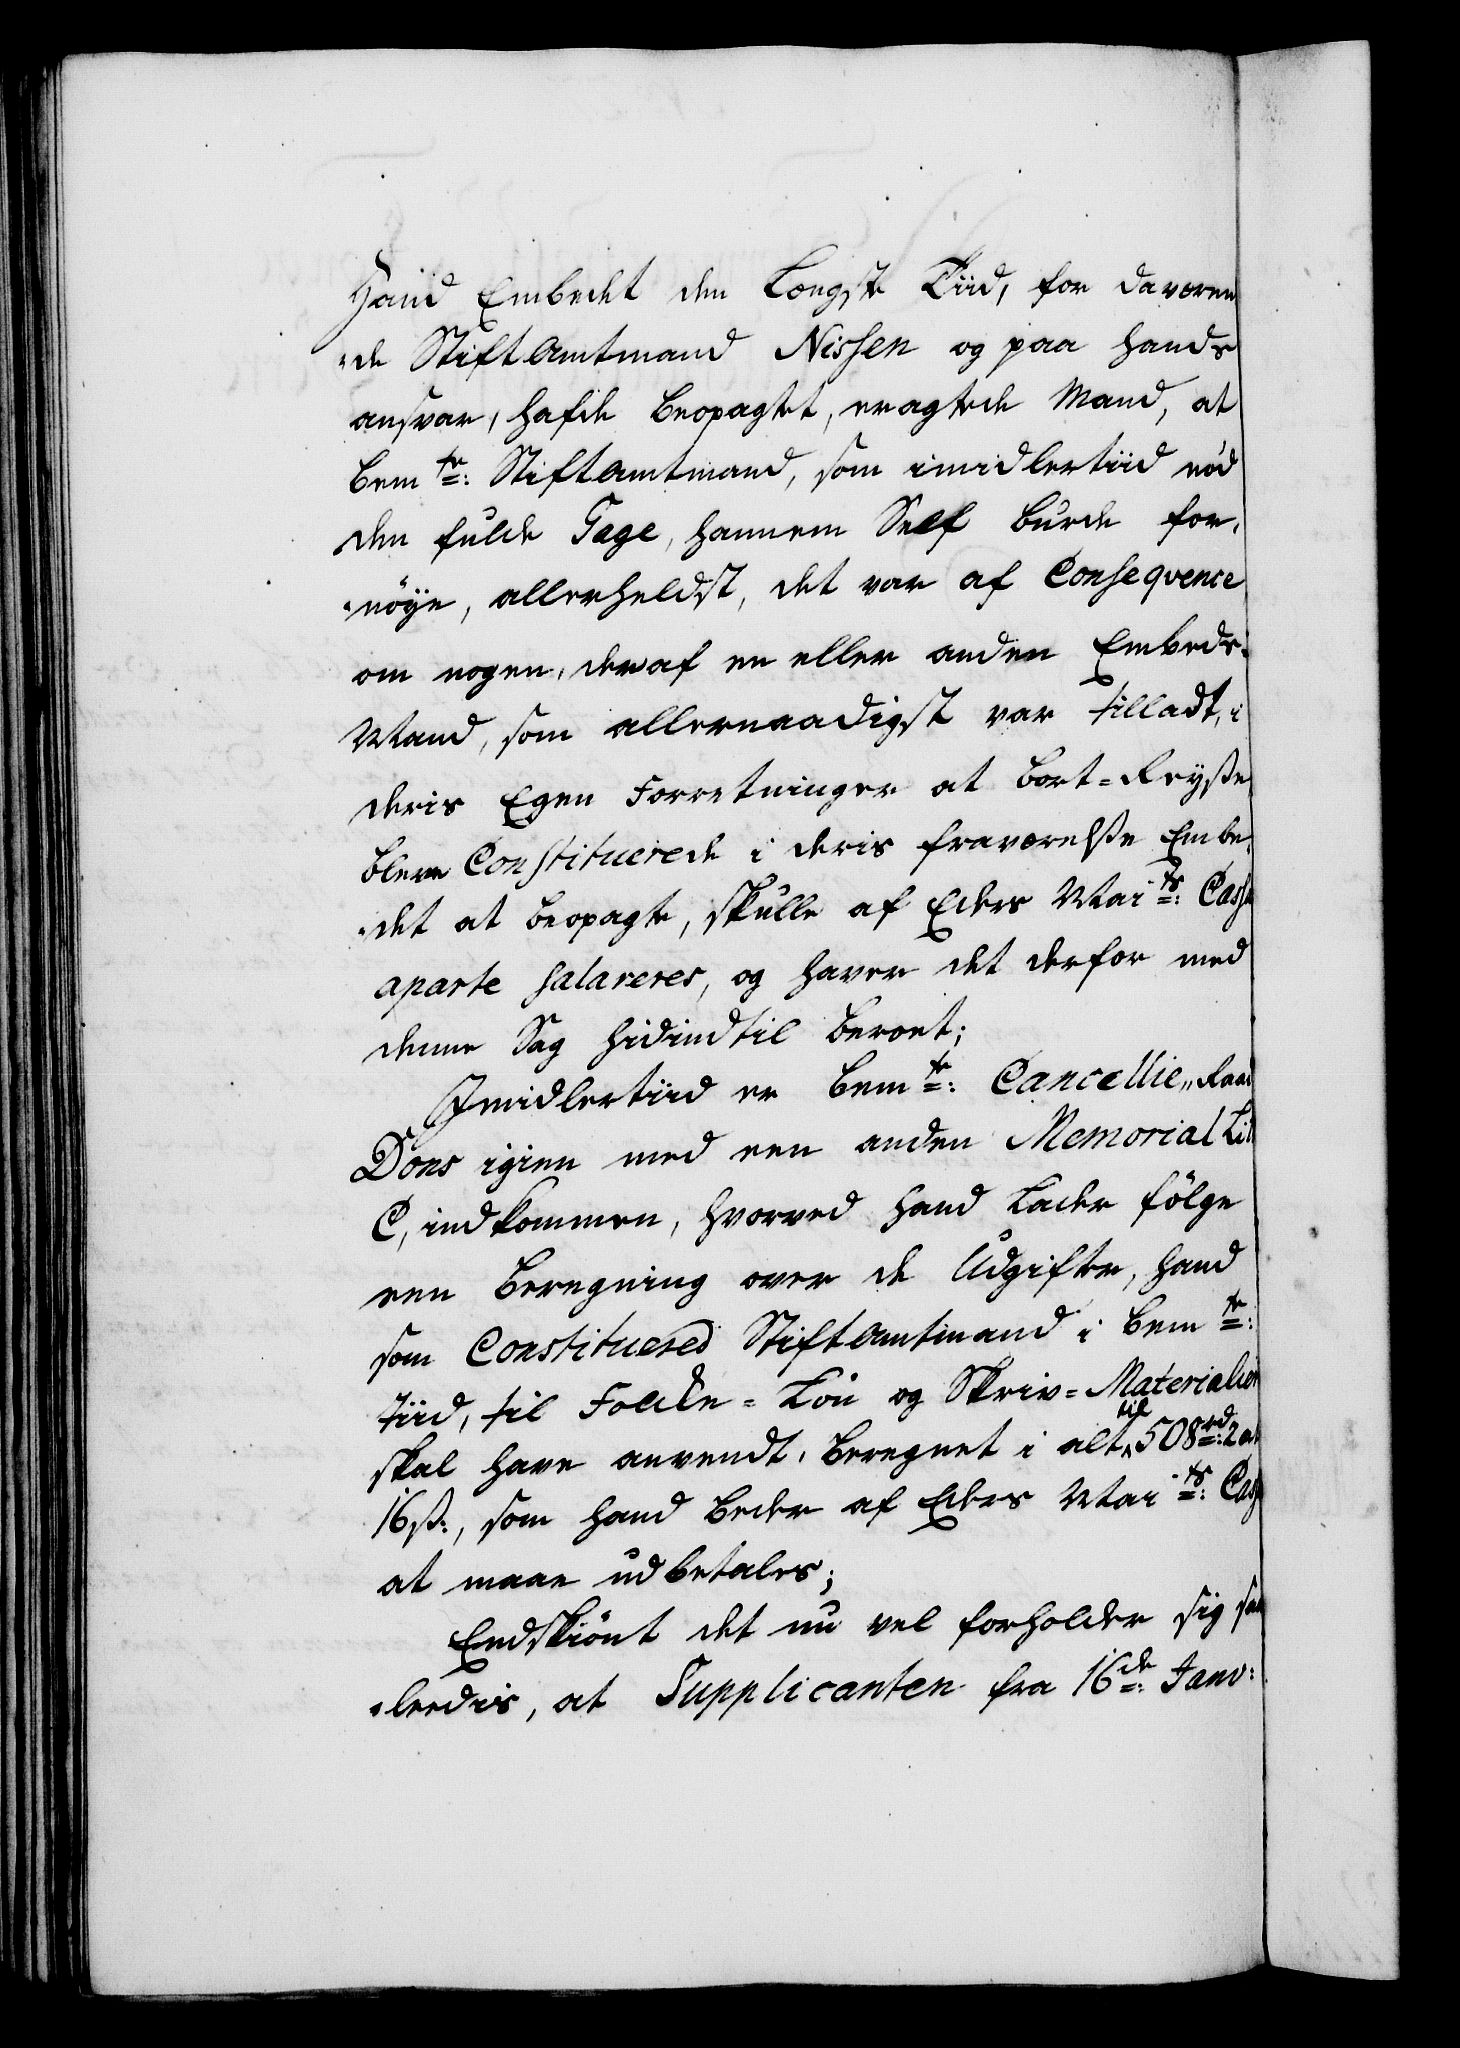 Hand Embedet den Længste Tiid, for daværen
"de Stiftamtmand Nissen og paa hands
ansvar, hafde beopagtet, eragtede Mand, at
bem te: Stiftamtmand, som imidlertiid nød
den fulde Gage, hannem Self burde for,
"nöye, allerheldst, det var af Conseqvence
om nogen, deraf en eller anden Embeds-
Mand, som allernaadigst var tilladt, i
deris Egen Forretninger at bort=Reyße
bleve Constituerede i deris fraværelße Embe,
"det at beopagte, skulle af Eders Mai ts: Casse
aparte salareres, og haver det derfor med
denne Sag hidindtil beroet;
Imidlertiid er bem te: Cancellie" Raad
Dons igien med een anden Memorial Lit
C, indkommen, hvorved hand Lader fölge
een Beregning over de Udgifter, hand
som Constituered Stiftamtmand i bem te:
tiid, til Folke=Lön og Skriv=Materialier
skal have anvendt, beregnet i alt til 508 rd: 2 ort
16 ß:, som hand beder af Eders Mai ts: Casse
at maae udbetales;
Endskiönt det nu vel forholder sig saa
"leedis, at Supplicanten fra 16 de: Janv: